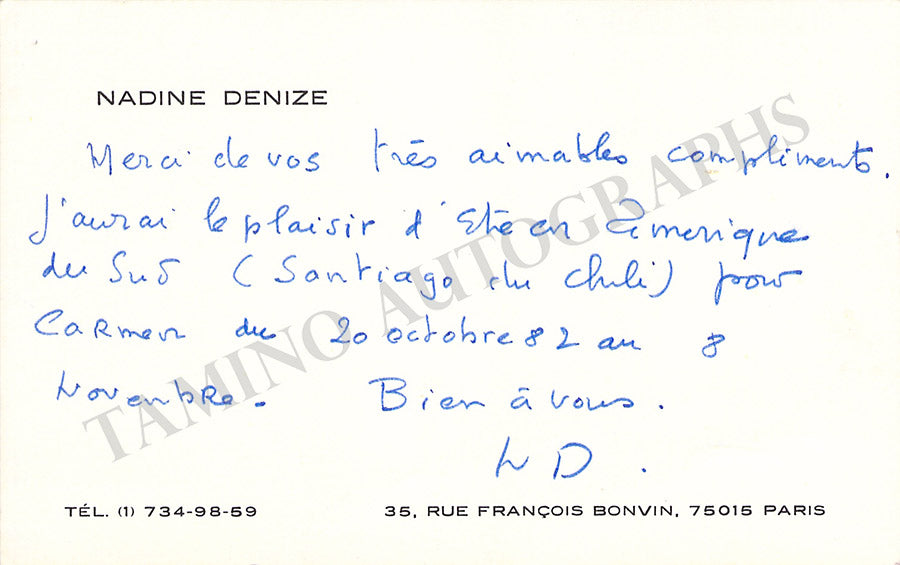 NADINE DENIZE
Merci de vos très aimables compliments.
J'aurai le plaisir d'être en Amerique
du Sud (Santiago du Chili) pour
Carmen du 20 octobre 82 au 8
Novembre. Bien à vous.
ND.
TÉL. (1) 734-98-59
35, RUE FRANÇOIS BONVIN, 75015 PARIS
TAMINO AUTOGRAPHS